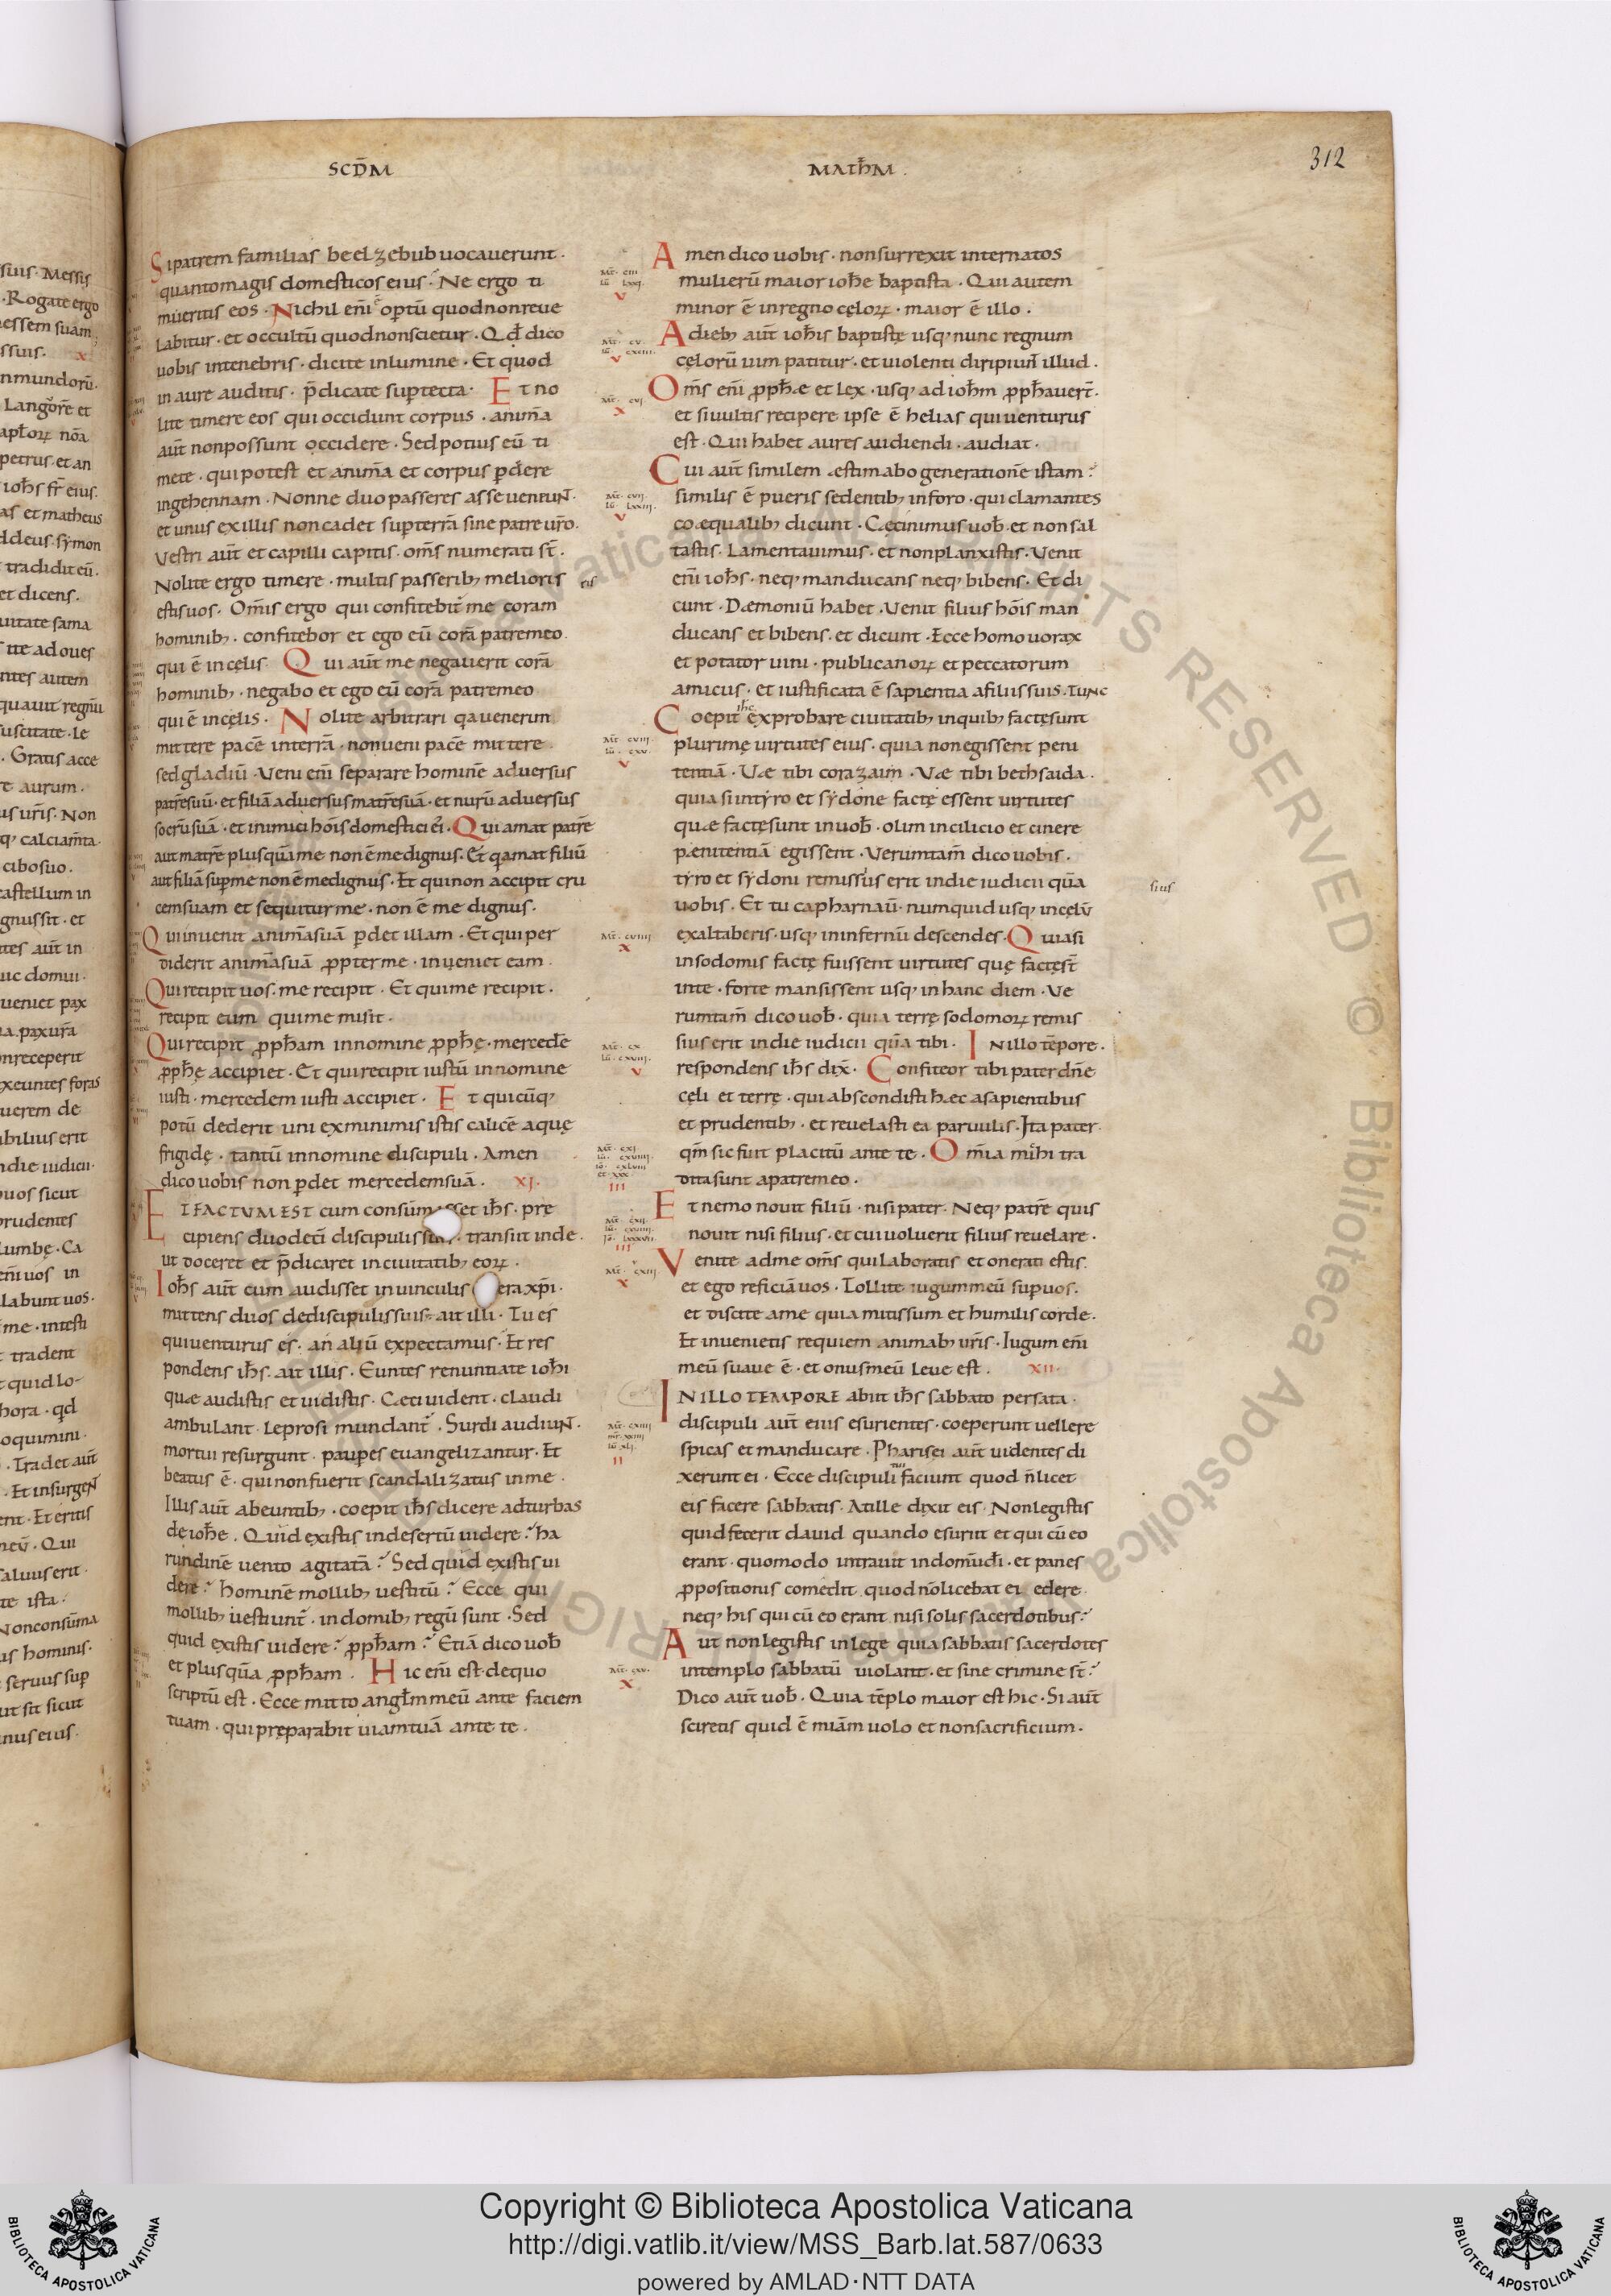 SCD̄M
MATH̄M.
312
Si patrem familias beelzebub uocauerunt·
quantomagis domesticos eius· Ne ergo ti
mueritis eos· Nichil eni opt̄ū quodnonreue
labitur· et occultū quodnonscietur· Qđ dico
uobis intenebris· dicite inlumine· Et quod
in aure auditis· p̄dicate sup tecta· Et no
lite timere eos qui occidunt corpus· anim̄a
aut̄ nonpossunt occidere· Sed potius eū ti
mete· qui potest et anim̄a et corpus pdere
ingehennam· Nonne duo passeres asse ueneuNt·
et unus exillis noncadet sup terrā sine patre ur̄o·
Vestri aut̄ et capilli capitis· oms̄ numerati st̄·
Nolite ergo timere· multis passerib; melioris tis
estis uos· Om̄is ergo qui confitebit̄ me coram
hominib;· confitebor et ego eū corā patremeo
qui ē in cęlis· Qui aut̄ me negauerit corā
hominib;· negabo et ego eū corā patremeo
qui ē incęlis· Nolite arbitrari qa uenerim
mittere pacē interrā· nonueni pacē mittere
sed gladiū· Veni eni separare hominē aduersus
patrē suū· et filiā aduersus matrē suā· et nurū aduersus
socrū suā· et inimici hōis domestici ei· Qui amat patrē
aut matrē plusquā me non ē me dignus· Et q amat filiū
aut filiā sup me non ē me dignus· Et qui non accipit cru
cem suam et sequitur me· non ē me dignus·
Qui inuenit anim̄a suā pdet illam· Et qui per
diderit anim̄a suā ppter me· inueniet eam
Qui recipit uos· me recipit· Et qui me recipit·
recipit eum qui me misit·
Qui recipit pph̄am in nomine pph̄ę· mercedē
pph̄ę accipiet· Et qui recipit iustū in nomine
iusti· mercedem iusti accipiet· Et quicūq;
potū dederit uni ex minimis istis calicē aquę
frigidę· tantū in nomine discipuli· Amen
dico uobis non pdet mercedem suā· XI·
ET FACTUM EST cum consūmasset ihs̄· pre
cipiens duodeci discipulis suis· transiit inde·
ut doceret et p̄dicaret in ciuitatib; eoꝝ·
Iohs̄ aut̄ cum audisset in uinculis opera xp̄i·
mittens duos de discipulis suis· ait illi· Tu es
qui uenturus es· an aliū expectamus· Et res
pondens ihs̄· ait illis· Euntes renuntiate ioh̄i
quæ audistis et uidistis· Cæci uident· claudi
ambulant· leprosi mundant̄· Surdi audiuNt·
mortui resurgunt· paupes euangelizantur· Et
beatus ē· qui non fuerit scandalizatus in me·
Illis aut̄ abeuntib;· coepit ihs̄ dicere ad turbas
de ioh̄e· Quid existis in desertū uidere· ha
rundinē uento agitatā· Sed quid existis ui
dere· hominē mollib; uestitū· Ecce qui
mollib; uestiunt̄· in domib; regū sunt· Sed
quid existis uidere· pph̄am· Etiā dico uob̄
et plusquā pph̄am· Hic eni est de quo
scriptū est· Ecce mitto angl̄m meū ante faciem
tuam· qui pręparabit uiam tuā ante te·
Amen dico uobis· non surrexit inter natos
mulierū maior ioh̄e baptista· Qui autem
minor ē in regno cęloꝝ· maior ē illo·
A dieb; aut̄ ioh̄is baptistę usq; nunc regnum
cęlorū uim patitur· et uiolenti diripiunt illud·
Om̄s eni pph̄æ et lex· usq; ad ioh̄m pph̄auert̄·
et si uultis recipere ipse ē helias qui uenturus
est· Qui habet aures audiendi· audiat·
Cui aut̄ similem æstimabo generationē istam·
similis ē pueris sedentib; in foro· qui clamantes
coæqualib; dicunt· Cęcinimus uob̄· et non sal
tastis· Lamentauimus· et non planxistis· Venit
eni iohs̄· neq; manducans neq; bibens· Et di
cunt· Dæmoniū habet· Venit filius hōis man
ducans et bibens· et dicunt· Ecce homo uorax
et potator uini· publicanoꝝ et peccatorum
amicus· et iustificata ē sapientia a filiis suis· TUNC
Coepit ihc exprobare ciuitatib; in quib; factę sunt
plurimę uirtutes eius· quia non egissent peni
tentiā· Uæ tibi corazaim· Væ tibi bethsaida·
quia si in tyro et sydone factę essent uirtutes
quæ factę sunt in uob̄· olim in cilicio et cinere
pænitentiā egissent· Verumtam̄ dico uobis·
tyro et sydoni remissius erit in die iudicii quā sius
uobis· Et tu capharnaū· numquid usq; in cęlū
exaltaberis· usq; in infernū descendes· Quia si
in sodomis factę fuissent uirtutes quę factę st̄
in te· forte mansissent usq; in hanc diem· Ve
rumtam̄ dico uob̄· quia terrę sodomoꝝ remis
sius erit in die iudicii quā tibi· In illo tēpore·
respondens ihs̄ dix̄· Confiteor tibi pater dn̄e
cęli et terrę· qui abscondisti hæc a sapientibus
et prudentib;· et reuelasti ea paruulis· Ita pater
qm̄ sic fuit placitū ante te· Om̄ia mihi tra
dita sunt a patre meo·
Et nemo nouit filiū· nisi pater· Neq; patrē quis
nouit nisi filius· et cui uoluerit filius reuelare·
Venite ad me oms̄ qui laboratis et onerati estis
et ego reficiā uos· Tollite iugum meū sup uos·
et discite a me quia mitis sum et humilis corde·
Et inuenietis requiem animab; ur̄is· Iugum eni
meū suaue ē· et onus meū leue est· XII·
IN ILLO TEMPORE abiit ihs̄ sabbato per sata·
discipuli aut̄ eius esurientes· coeperunt uellere
spicas et manducare· Pharisei aut̄ uidentes di
xerunt ei· Ecce discipuli tui faciunt quod n̄ licet
eis facere sabbatis· At ille dixit eis· Non legistis
quid fecerit dauid quando esuriit et qui cū eo
erant· quomodo intrauit in domū di· et panes
ppositionis comedit quod n̄ licebat ei edere
neq; his qui cū eo erant nisi solis sacerdotibus·
Aut non legistis in lege quia sabbatis sacerdotes
in templo sabbatū uiolant· et sine crimine st̄·
Dico aut̄ uob̄· Quia tēplo maior est hic· Si aut̄
sciretis quid ē miām uolo et non sacrificium·
Copyright © Biblioteca Apostolica Vaticana
http://digi.vatlib.it/view/MSS_Barb.lat.587/0633
powered by AMLAD·NTT DATA